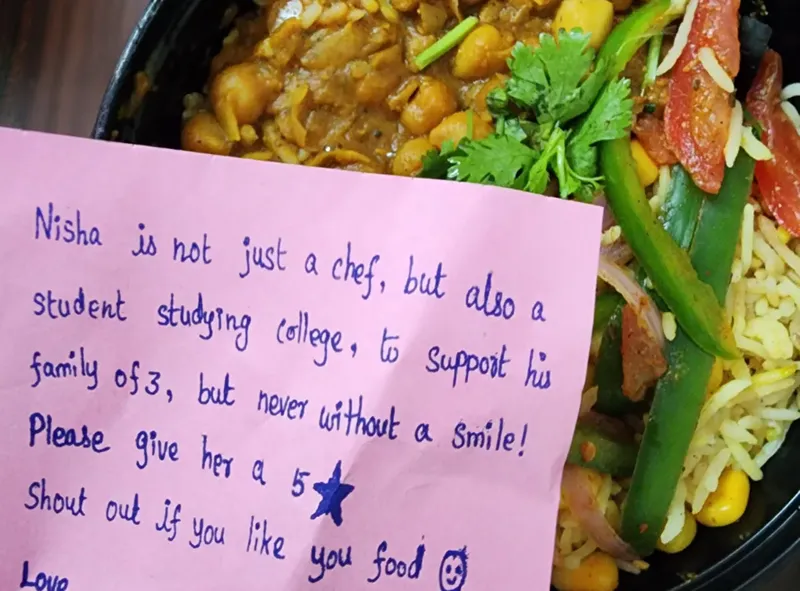 Nisha is not just a chef, but also a
student studying college, to support his
family of 3, but never without a smile!
Please give her a 5 ★
Shout out if you like you food ☺
Love